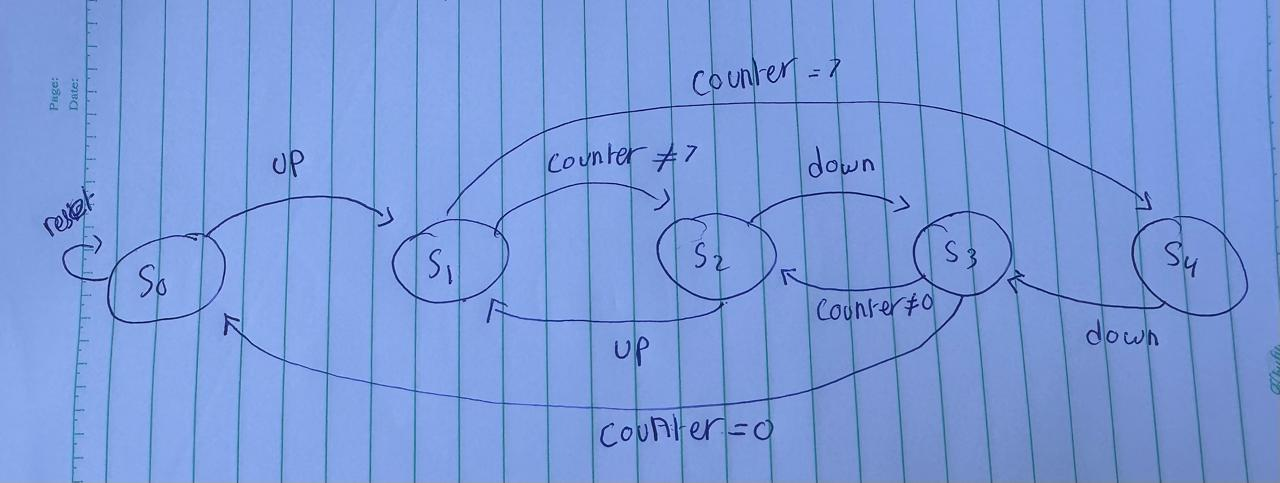 Page:
Date:
counter = 7
UP
counter ≠ 7
down
reset
S0
S1
S2
S3
S4
counter≠0
UP
down
counter = 0